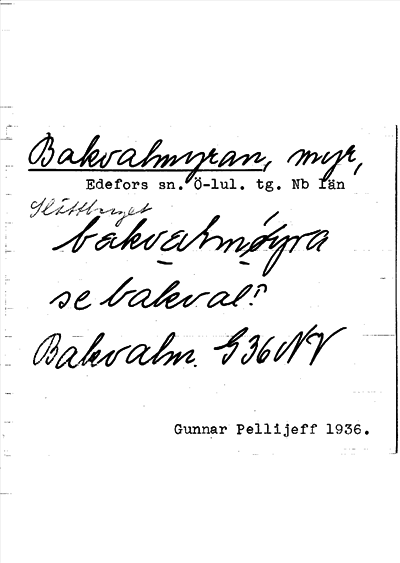 Bakvalmyran, myr,
Edefors sn. Ö-lul. tg. Nb län
Slåttberget
bakvalmøyra
se bakval?
Bakvalm. G36NV
Gunnar Pellijeff 1936.